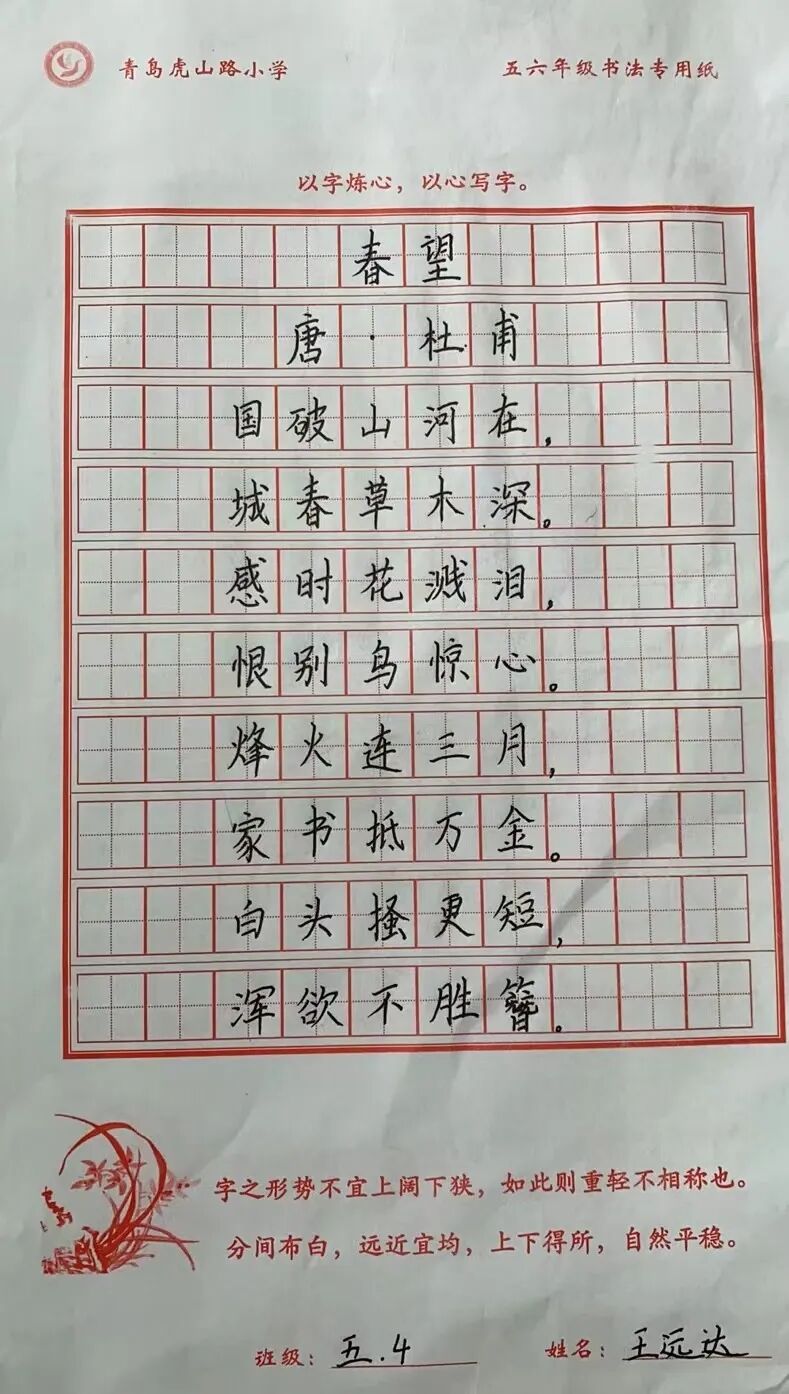 青岛虎山路小学 五六年级书法专用纸
以字炼心，以心写字。
春望
唐·杜甫
国破山河在，
城春草木深。
感时花溅泪，
恨别鸟惊心。
烽火连三月，
家书抵万金。
白头搔更短，
浑欲不胜簪。
字之形势不宜上阔下狭，如此则重轻不相称也。
分间布白，远近宜均，上下得所，自然平稳。
班级：五.4 姓名：王远达